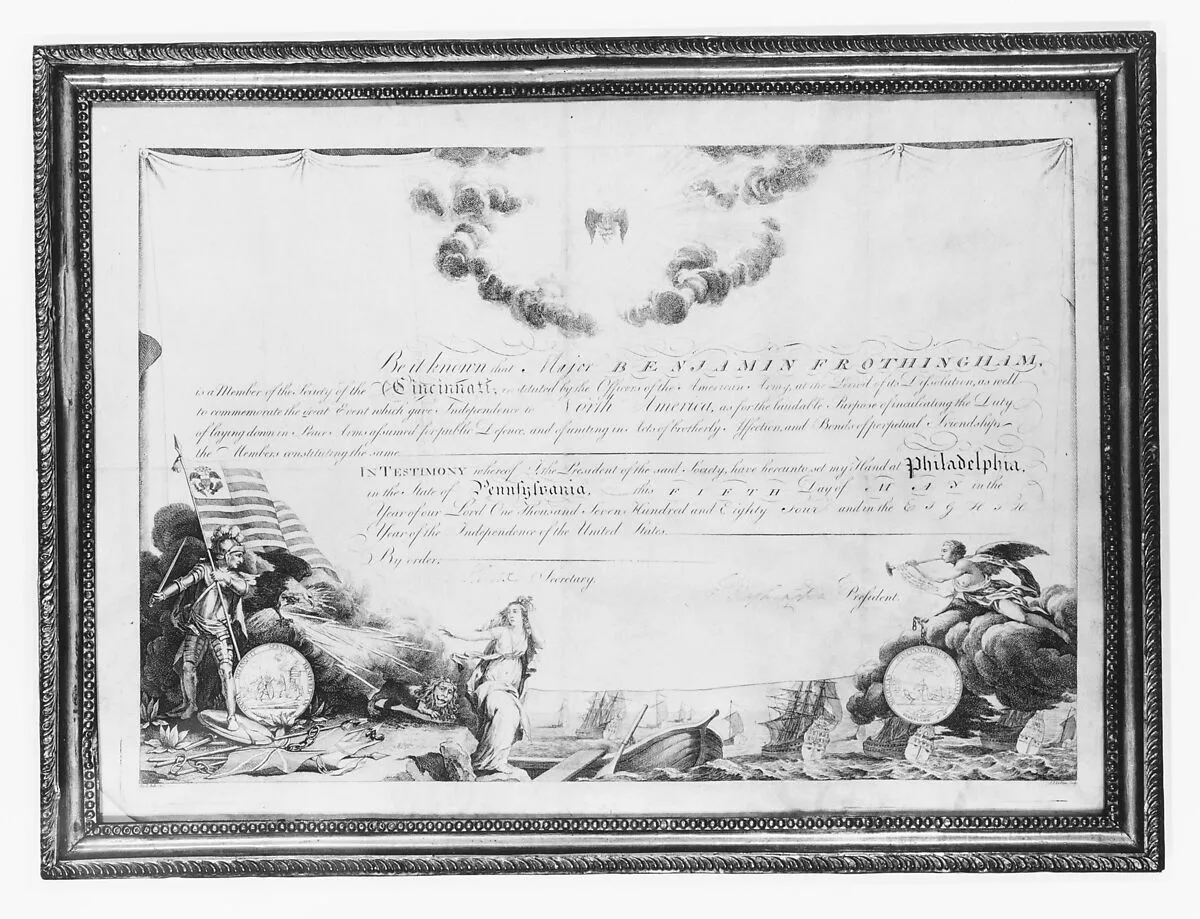 Be it known that Major BENJAMIN FROTHINGHAM,
is a Member of the Society of the Cincinnati; instituted by the Officers of the American Army, at the Period of its Dissolution, as well
to commemorate the great Event which gave Independence to North America, as for the laudable Purpose of inculcating the Duty
of laying down in Peace Arms assumed for public Defence, and of uniting in Acts of brotherly Affection, and Bonds of perpetual Friendship
the Members constituting the same.
IN TESTIMONY whereof I the President of the said Society, have hereunto set my Hand at Philadelphia,
in the State of Pennsylvania, this FIFTH Day of MAY in the
Year of our Lord One Thousand Seven Hundred and Eighty Four and in the EIGHTH
Year of the Independence of the United States.
By order,
Secretary.
President.